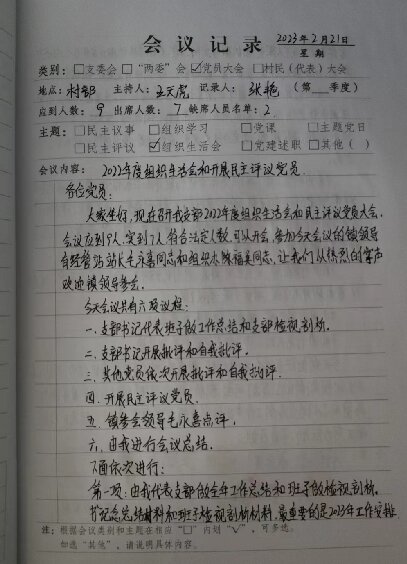 会议记录 2023年2月21日
星期
类别：□支委会 □“两委”会 ☑党员大会 □村民（代表）大会
地点：村部 主持人：王天虎 记录人：张艳 （第 季度）
应到人数：9 出席人数：7 缺席人员名单：2
主题：□民主议事 □组织学习 □党课 □主题党日
□民主评议 ☑组织生活会 □党建述职 □其他（ ）
会议内容：2022年度组织生活会和开展民主评议党员
各位党员：
大家好，现在召开我支部2022年度组织生活会和民主评议党员大会，
会议应到9人，实到7人，符合法定人数，可以开会，参加今天会议的镇领导
有经管站站长毛永嘉同志和组织办陈福美同志，让我们以热烈的掌声
欢迎镇领导参会。
今天会议共有六项议程：
一、支部书记代表班子做工作总结和支部检视剖析。
二、支部书记开展批评和自我批评。
三、其他党员依次开展批评和自我批评。
四、开展民主评议党员。
五、镇参会领导毛永嘉点评。
六、由我进行会议总结。
下面依次进行：
第一项：由我代表支部做全年工作总结和班子做检视剖析。
书记念总结材料和班子检视剖析材料，最重要的是2023年工作安排
注：根据会议类别和主题在相应“□”内划“√”，可多选。
如选“其他”，请说明具体内容。